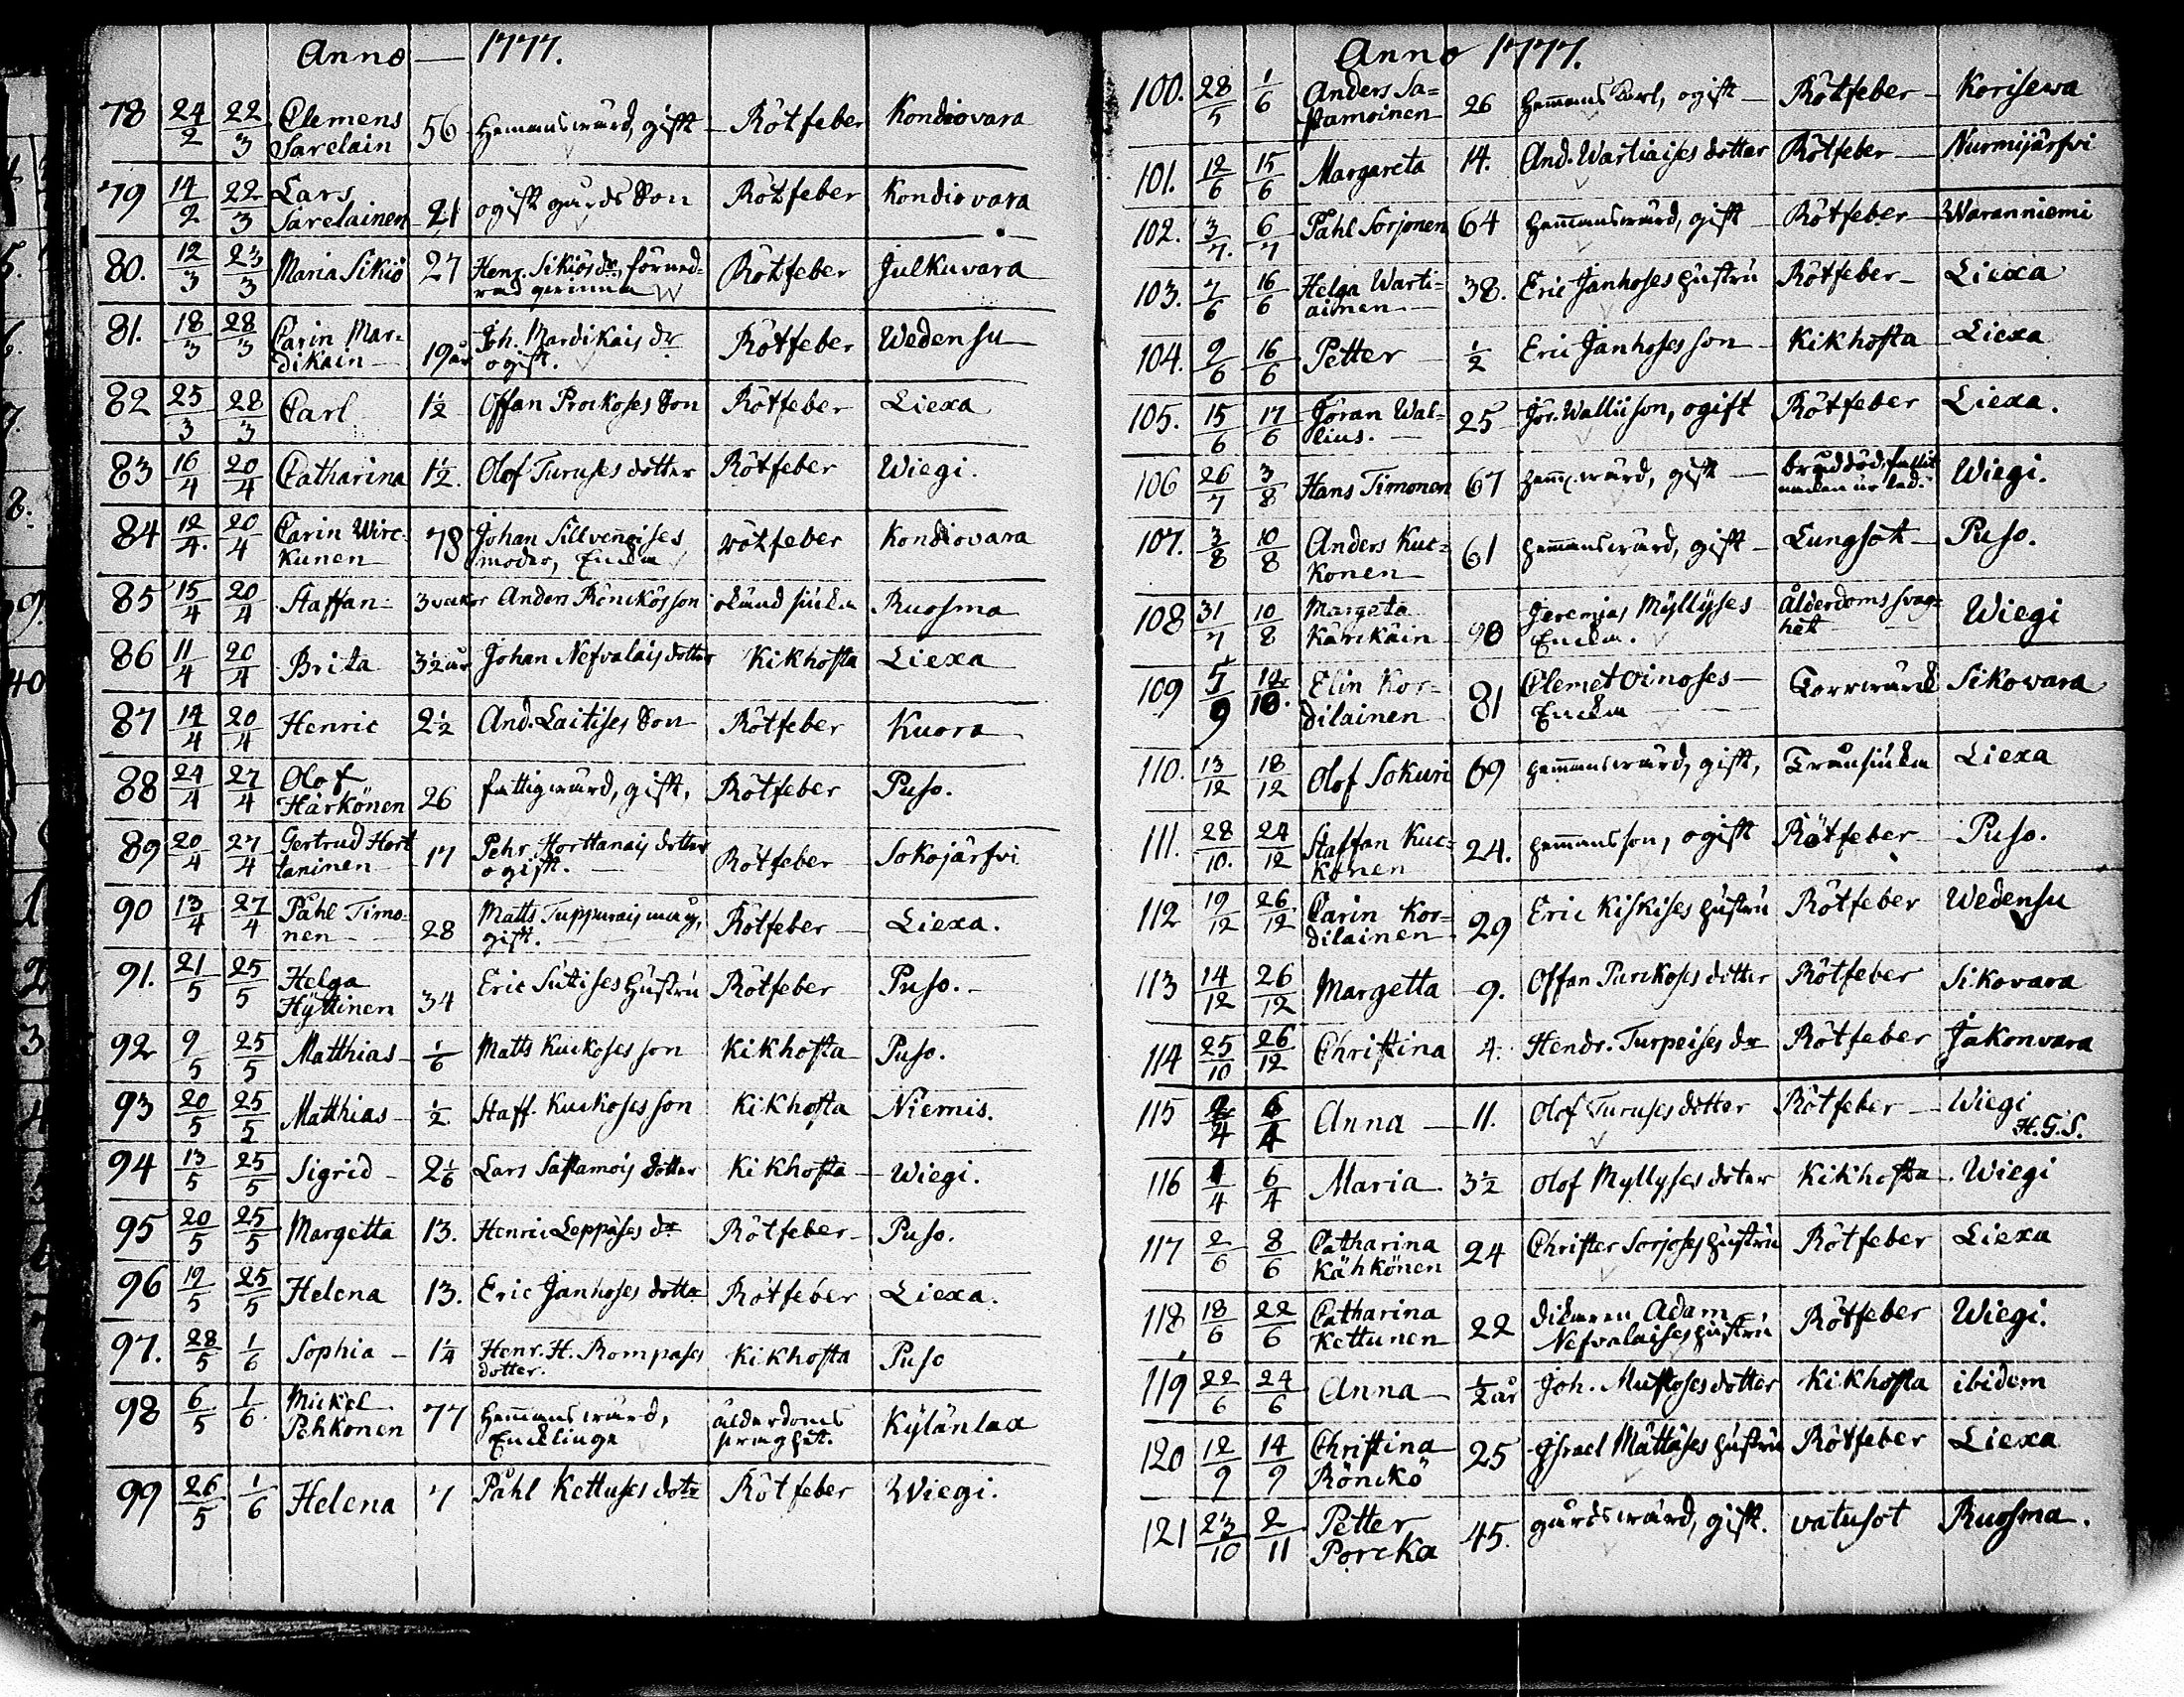 Anno — 1777.
78 24/2 22/3 Clemens Sarelain 56 hemanswärd, gift Rötfeber Kondiovara
79 14/2 22/3 Lars Sarelainen 21 ogift gårds Son Rötfeber Kondiovara
80. 12/3 23/3 Maria Sikiö 27 Henr. Sikiös dr, Rötfeber Julkuvara
81. 18/3 28/3 Carin Mardikain 19 år Joh. Mardikais dr ogift. Rötfeber Wedensu
82 25/3 28/3 Carl 1½ Offan Prockoses Son Rötfeber Liexa
83 16/4 20/4 Catharina 1½. Olof Turuses dotter Rötfeber Wiegi.
84 12/4. 20/4 Carin Wirckunen 78 Johan Sillvenoises moder, Encka rötfeber Kondiovara
85 15/4 20/4 Staffan 3 vekor Anders Rönckös son okänd siucka Ruosma
86 11/4 20/4 Brita 3½ år Johan Nefvalais dotter Kikhosta Liexa
87 14/4 20/4 Henric 2½ And. Laitises Son Rötfeber Kuora
88 24/4 27/4 Olof Härkönen 26 fattigwård, gift, Rötfeber Puso.
89 20/4 27/4 Gertrud Horttaninen 17 Pehr Horttanais dotter ogift. Rötfeber Sokojärfvi
90 13/4 27/4 Påhl Timonen 28 Matts Tuppurais måg, gift. Rötfeber Liexa.
91. 21/5 25/5 Helga Hyttinen 34 Eric Sutises hustru Rötfeber Puso.
92 9/5 25/5 Matthias 1/6 Matts Kuckoses son Kikhosta Puso.
93 20/5 25/5 Matthias ½ Staff. Kuckoses son Kikhosta Niemis.
94 13/5 25/5 Sigrid 2 1/6 Lars Sastamois dotter Kikhosta Wiegi.
95 20/5 25/5 Margetta 13. Henric Leppäses dr Rötfeber Puso.
96 19/5 25/5 Helena 13. Eric Janhoses dotter Rötfeber Liexa.
97. 28/5 1/6 Sophia 1¼ Henr. H. Rompases dotter. Kikhosta Puso
98 6/5 1/6. Mickel Pehkonen 77 hemmanswärd, Encklinge ålderdoms swaghet. Kylänlax
99 26/5 1/6 Helena 7 Påhl Kettuses dotr Rötfeber Wiegi.
Anno 1777.
100. 28/5 1/6 Anders Sastamoinen 26 hemmans Karl, ogift Rötfeber Korisewa
101. 12/6 15/6 Margareta 14. And. Wartiaises dotter Rötfeber Nurmijärfvi
102. 3/7. 6/7 Påhl Sorjonen 64 hemmanswärd, gift Rötfeber Waranniemi
103. 7/6 16/6 Helga Wartiainen 38. Eric Janhoses hustru Rötfeber Liexa
104. 9/6 16/6 Petter ½ Eric Janhoses son Kikhosta Liexa
105. 15/6 17/6 Jöran Wallius. 25 Jör. Wallii son, ogift Rötfeber Liexa.
106 26/7 3/8 Hans Timonen 67 hem. wärd, gift bråddöd, Wiegi.
107. 3/8 10/8 Anders Kuckonen 61 hemmanswärd, gift Lungsot Puso.
108 31/7 10/8 Margeta Kärckäin 90 Jeremias Myllyses Encka. Ålderdoms svaghet Wiegi
109 5/9 12/10. Elin Kordilainen 81 Clemet Oinoses Encka Torrwärck Sikovara
110. 13/12 18/12 Olof Sokuri 69 hemmanswärd, gift, Tränsiucka Liexa
111. 28/10. 24/12 Staffan Kuckonen 24. hemmans son, ogift Rötfeber Puso.
112 19/12 26/12 Carin Kordilainen 29 Eric Kiskises hustru Rötfeber Wedensu
113 14/12 26/12 Margetta 9. Offan Purckoses dotter Rötfeber Sikovara
114 25/10 26/12 Christina 4. Hendr. Turpeises dr Rötfeber Jakonvara
115 2/4 6/4 Anna 11. Olof Turuses dotter Rötfeber Wiegi H.G.S.
116 4/4 6/4 Maria 3½ Olof Myllyses doter Kikhosta Wiegi
117 2/6 8/6 Catharina Kähkönen 24 Christer Sorjoses hustru Rötfeber Liexa
118 18/6 22/6 Catharina Kettunen 22 Adam Nefvalaises hustru Rötfeber Wiegi.
119 22/6 24/6 Anna ½ år Joh. Mustoses dotter Kikhosta ibidem
120 12/9 14/9 Christina Rönckö 25 Israel Mättäses hustru Rötfeber Liexa
121 23/10 2/11 Petter Porcka 45. gårdswärd, gift. vatusot Ruosma.